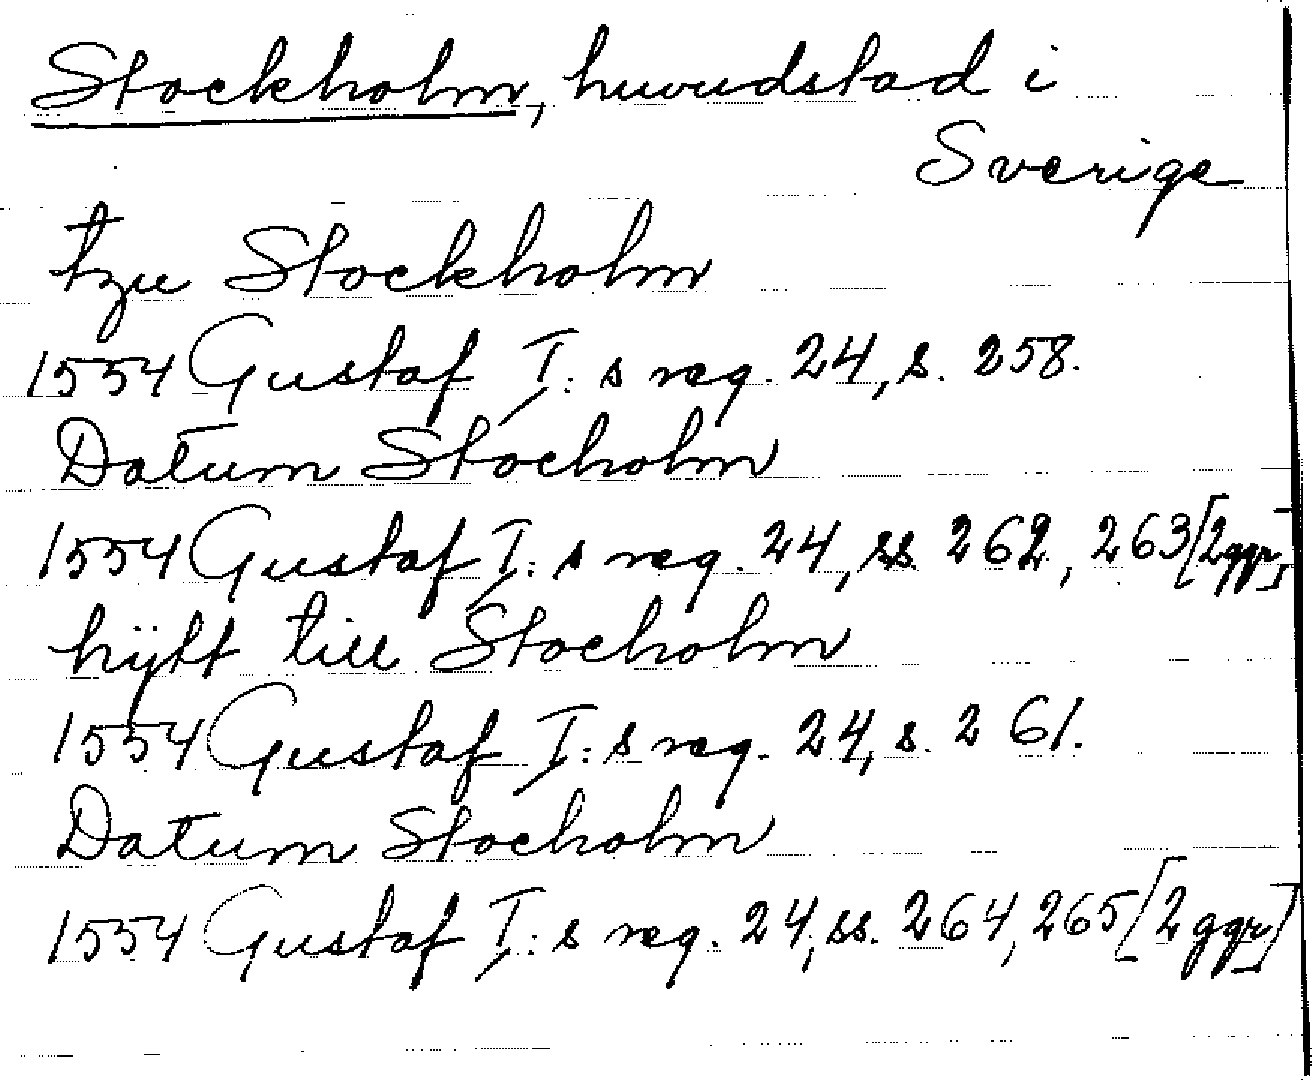 Stockholm, huvudstad i
Sverige
tzu Stockholm
1554 Gustaf I: s reg. 24, s. 258.
Datum Stocholm
1554 Gustaf I: s reg. 24, ss. 262, 263 [2 ggr]
hijtt till Stocholm
1554 Gustaf I: s reg. 24, s. 261.
Datum Stocholm
1554 Gustaf I: s reg. 24, ss. 264, 265 [2 ggr]